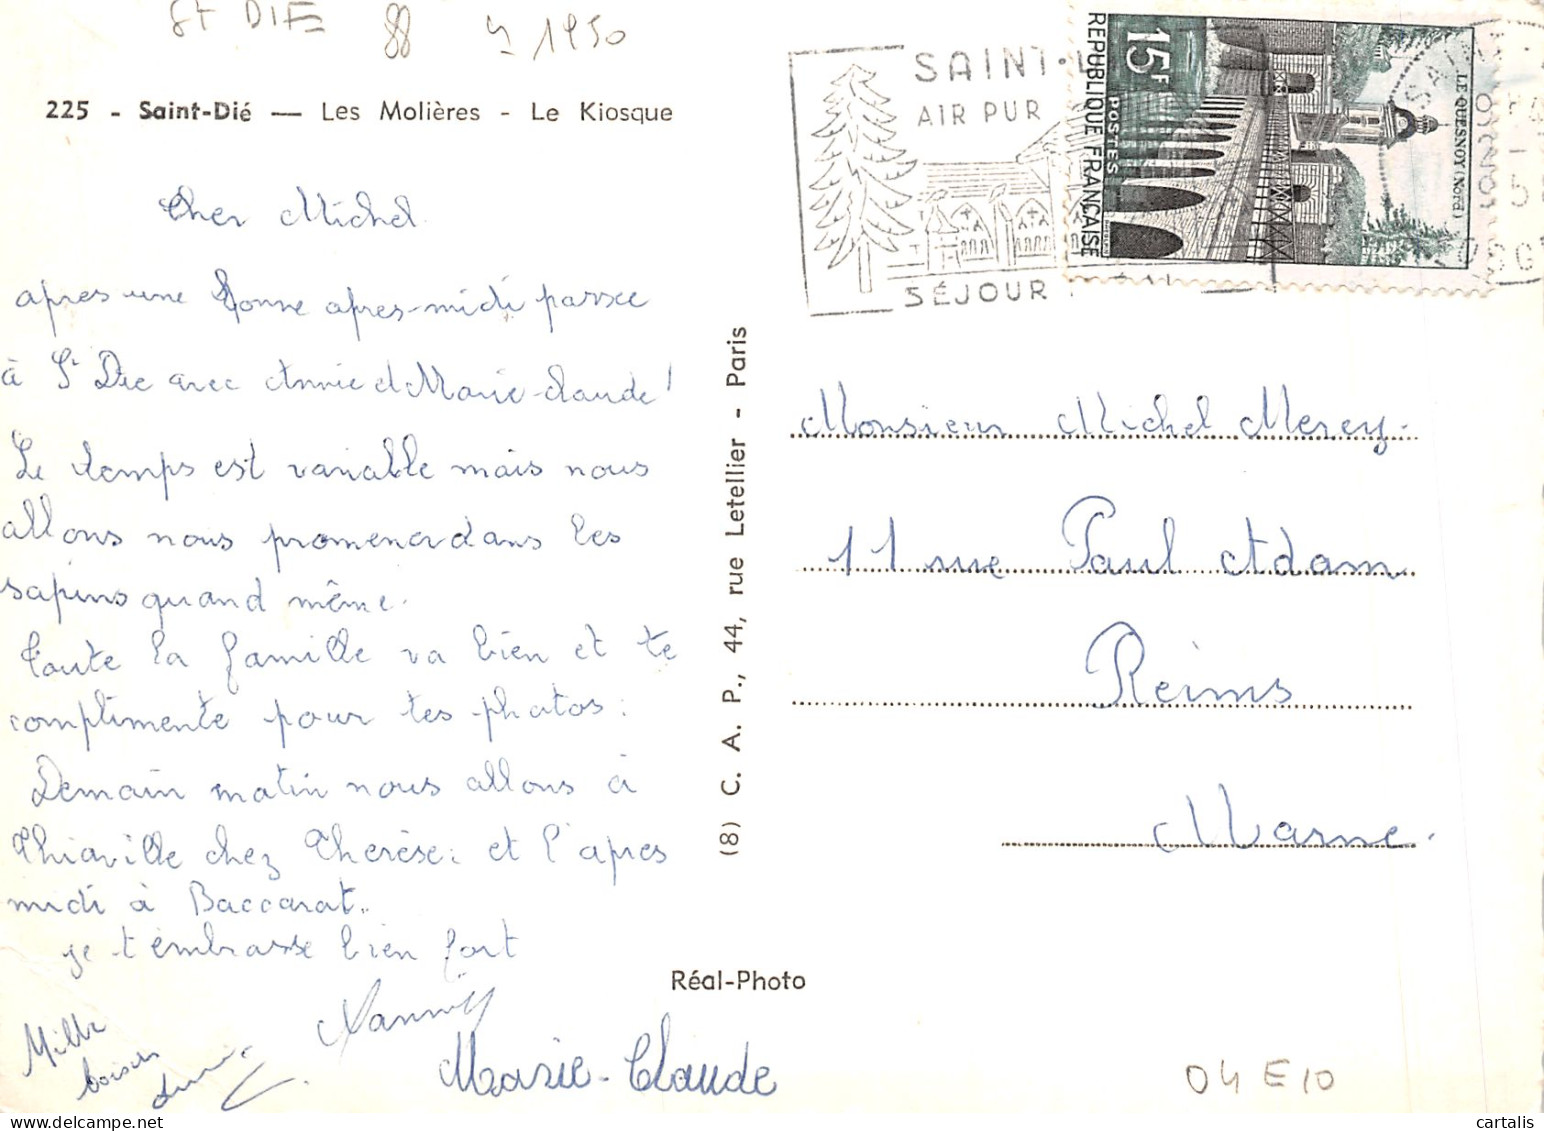 St DIE 88 1950
225 - Saint-Dié — Les Molières - Le Kiosque
Cher Michel.
après une bonne après-midi passée
à St Dié avec Annie et Marie-Claude!
Le temps est variable mais nous
allons nous promener dans les
sapins quand même.
Toute la famille va bien et te
complimente pour tes photos.
Demain matin nous allons à
Thiaville chez Thérèse. et l'apres
midi à Baccarat.
je t'embrasse bien fort
Mille
baisers
Marie-Claude
(8) C. A. P., 44, rue Letellier - Paris
Réal-Photo
SAINT-
AIR PUR
SÉJOUR
15F
POSTES
REPUBLIQUE FRANÇAISE
LE QUESNOY (Nord)
Monsieur Michel Merey.
11 rue Paul Adam
Reims
Marne.
04 E 10
cartalis